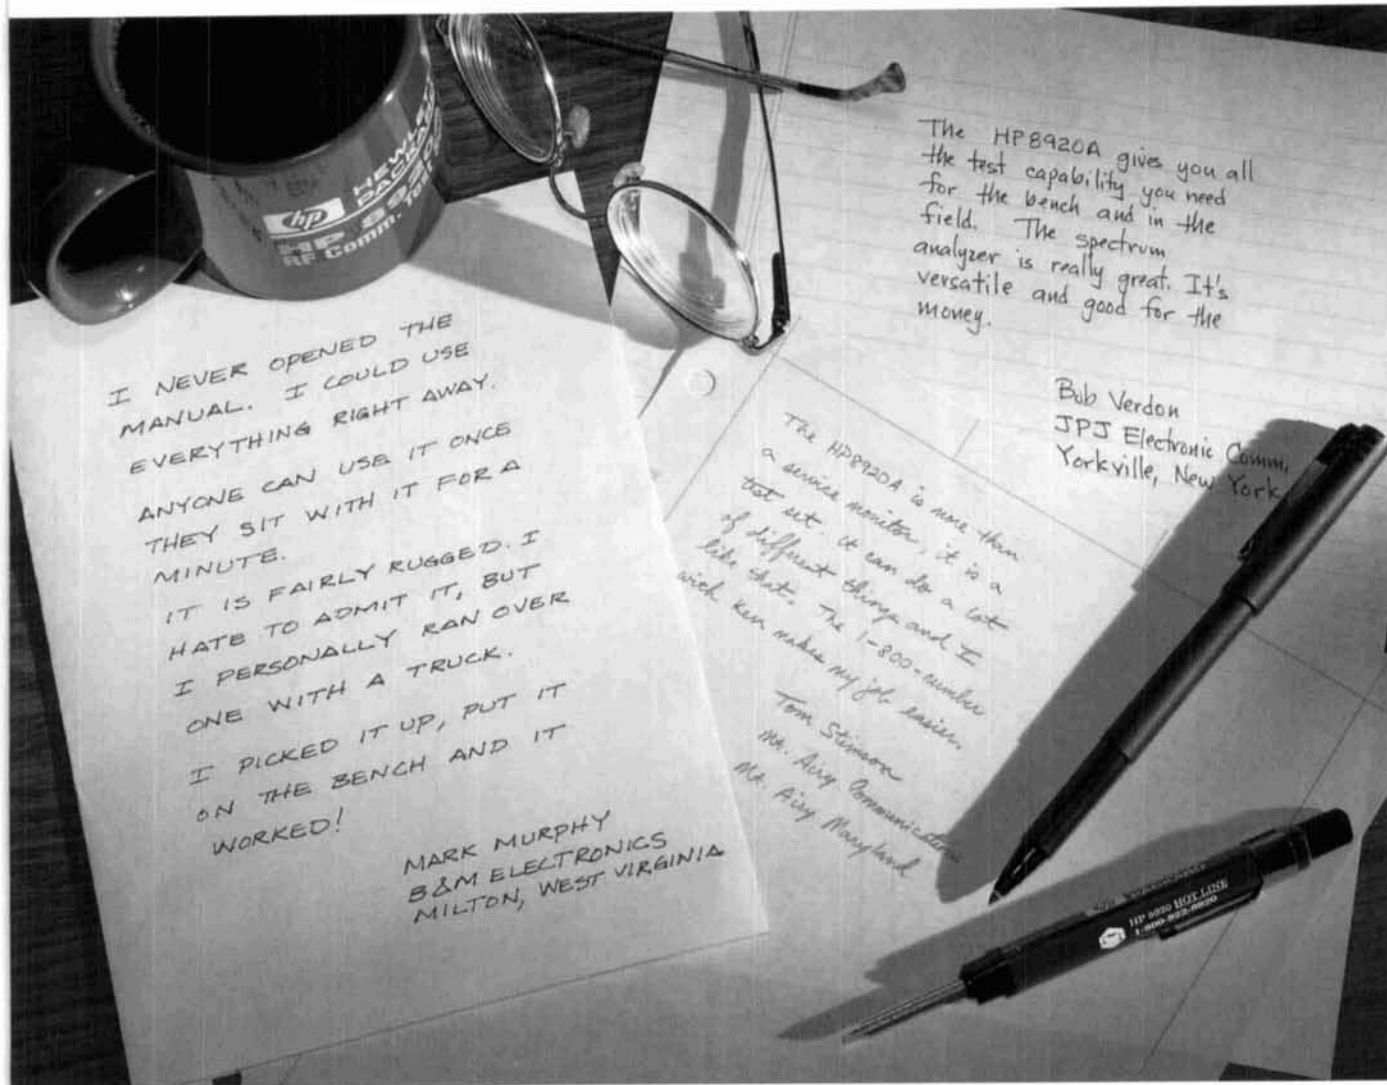 HEWLE
PACKA
hp
HP 8920
RF Comm. Test
I NEVER OPENED THE
MANUAL. I COULD USE
EVERYTHING RIGHT AWAY.
ANYONE CAN USE IT ONCE
THEY SIT WITH IT FOR A
MINUTE.
IT IS FAIRLY RUGGED. I
HATE TO ADMIT IT, BUT
I PERSONALLY RAN OVER
ONE WITH A TRUCK.
I PICKED IT UP, PUT IT
ON THE BENCH AND IT
WORKED!
MARK MURPHY
B&M ELECTRONICS
MILTON, WEST VIRGINIA
The HP8920A gives you all
the test capability you need
for the bench and in the
field. The spectrum
analyzer is really great. It's
versatile and good for the
money.
Bob Verdon
JPJ Electronic Comm.
Yorkville, New York
The HP8920A is more than
a service monitor, it is a
test set. It can do a lot
of different things and I
like that. The 1-800-number
with Ken makes my job easier.
Tom Stimson
Mt. Airy Communications
Mt. Airy Maryland
HP 8920 HOT LINE
1-800-922-8920